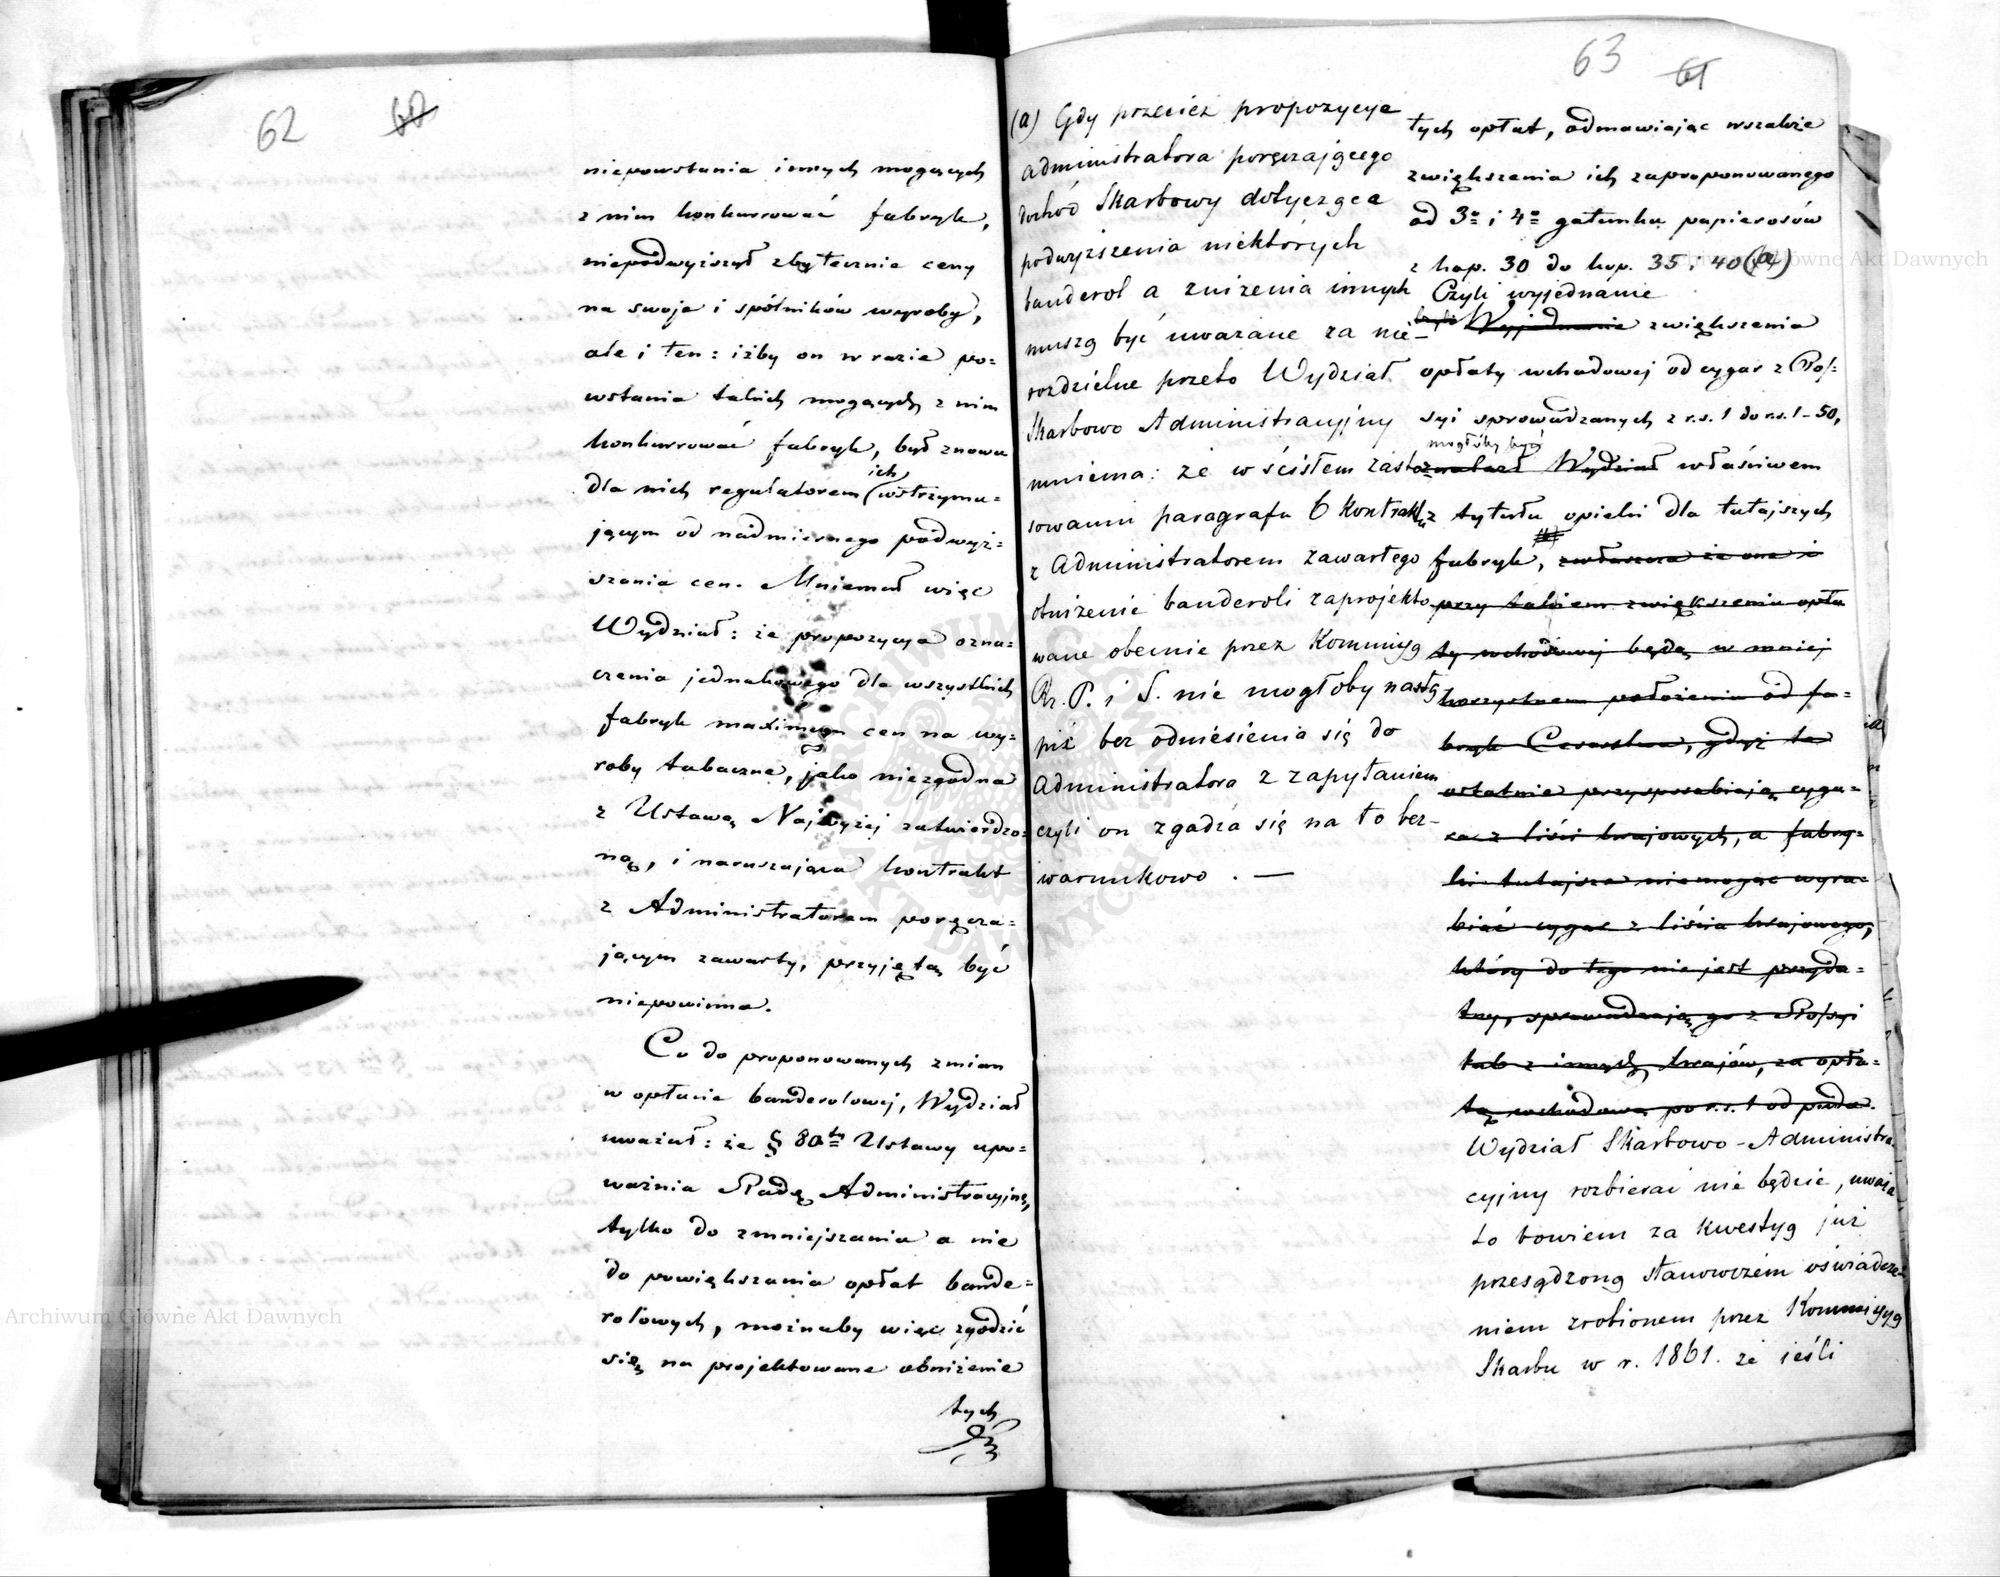 62 60
niepowstania innych mogących
z nim konkurować fabryk,
niepodwyższył zbytecznie ceny
na swoje i spólników wyroby,
ale i ten: iżby on w razie po=
wstania takich mogących z nim
konkurrować fabryk, był znowu
ich
dla nich regulatorem wstrzymu=
jącym od nadmiernego podwyż=
szania cen. Mniemał więc
Wydział: że propozycya ozna=
czenia jednakowego dla wszystkich
fabryk maximum cen na wy=
roby tabaczne, jako niezgodna
z Ustawą Najwyżej zatwierdzo=
ną, i naruszająca kontrakt
z Administratorem poręcza=
jącym zawarty, przyjętą być
niepowinna.
Co do proponowanych zmian
w opłacie banderolowej, Wydział
uważał: że § 80ty Ustawy upo=
ważnia Radę Administracyjną,
tylko do zmniejszania a nie
do powiększania opłat bande=
rolowych, możnaby więc zgodzić
się na projektowane obniżenie
tych
63 61
(a) Gdy przecież propozycye
Administratora poręczającego
dochód Skarbowy dotyczące
podwyższenia niektórych
banderol a zniżenia innych
muszą być uważane za nie-
rozdzielne przeto Wydział
Skarbowo Administracyjny
mniema: że w ścisłem zasto
sowaniu paragrafu 6 Kontraktu
z Administratorem zawartego
obniżenie banderoli zaprojekto
wane obecnie przez Kommisyą
Rz. P. i S. nie mogłoby nastą
pić bez odniesienia się do
Administratora z zapytaniem
czyli on zgadza się na to bez-
warunkowo . —
tych opłat, odmawiając wszakże
zwiększenia ich zaproponowanego
od 3o i 4o gatunku papierosów
z kop. 30 do kop. 35 i 40 (a)
Czyli wyjednanie
Wyjednanie zwiększenia
opłaty wchodowej od cygar z Ros=
syi sprowadzanych z r.s. 1 do r.s. 1-50,
mogłoby być
znalazł Wydział właściwem
z tytułu opieki dla tutajszych
fabryk, zwłaszcza że one i
przy takiem zwiększeniu opła
ty wchodowej będą w mniej
korzystnem położeniu od fa=
bryk Cesarstwa, gdyż te
ostatnie przysposabiają cyga=
ra z liści krajowych, a fabry=
ki tutajsze niemogąc wyra=
biać cygar z liścia krajowego,
który do tego nie jest przyda=
tny, sprowadzają go z Rossyi
lub z innych krajów, za opła=
tą wchodową po r.s. 1 od puda.
Wydział Skarbowo-Administra
cyjny rozbierać nie będzie, uważa
to bowiem za kwestyą już
przesądzoną stanowczém oświadcze
niem zrobionem przez Kommisyą
Skarbu w r. 1861. że jeśli
Archiwum Główne Akt Dawnych
Archiwum Główne Akt Dawnych
ARCHIWUM GŁÓWNE AKT DAWNYCH